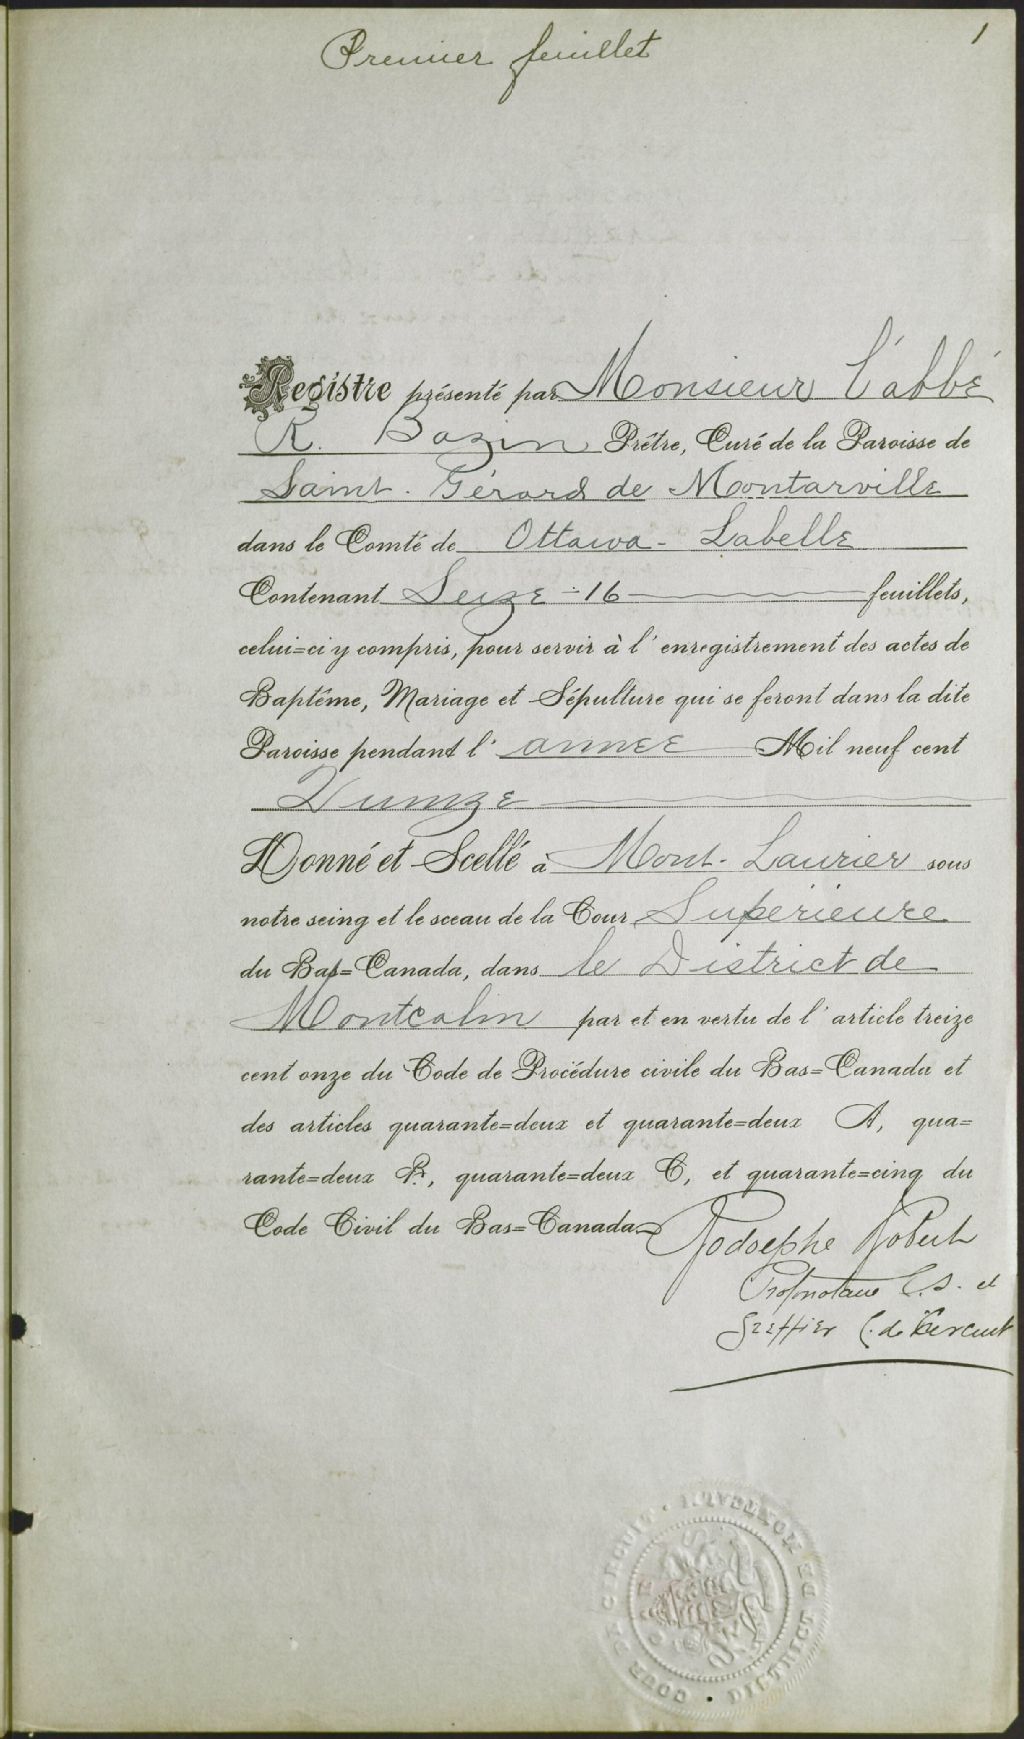 Premier feuillet
1
Registre présenté par Monsieur l'abbé
R. Bazin Prêtre, Curé de la Paroisse de
Saint-Gérard de Montarville
dans le Comté de Ottawa - Labelle
Contenant Seize - 16 feuillets,
celui=ci y compris, pour servir à l'enregistrement des actes de
Baptême, Mariage et Sépulture qui se feront dans la dite
Paroisse pendant l'année Mil neuf cent
Dunze
Donné et Scellé à Mont-Laurier sous
notre seing et le sceau de la Cour Supérieure
du Bas=Canada, dans le District de
Montcalm par et en vertu de l'article treize
cent onze du Code de Procédure civile du Bas=Canada et
des articles quarante=deux et quarante=deux A, qua=
rante=deux B, quarante=deux C, et quarante=cinq du
Code Civil du Bas=Canada
Rodolphe Robert
Protonotaire C.S. et
Greffier C. de Circuit
COUR DE CIRCUIT · DISTRICT DE